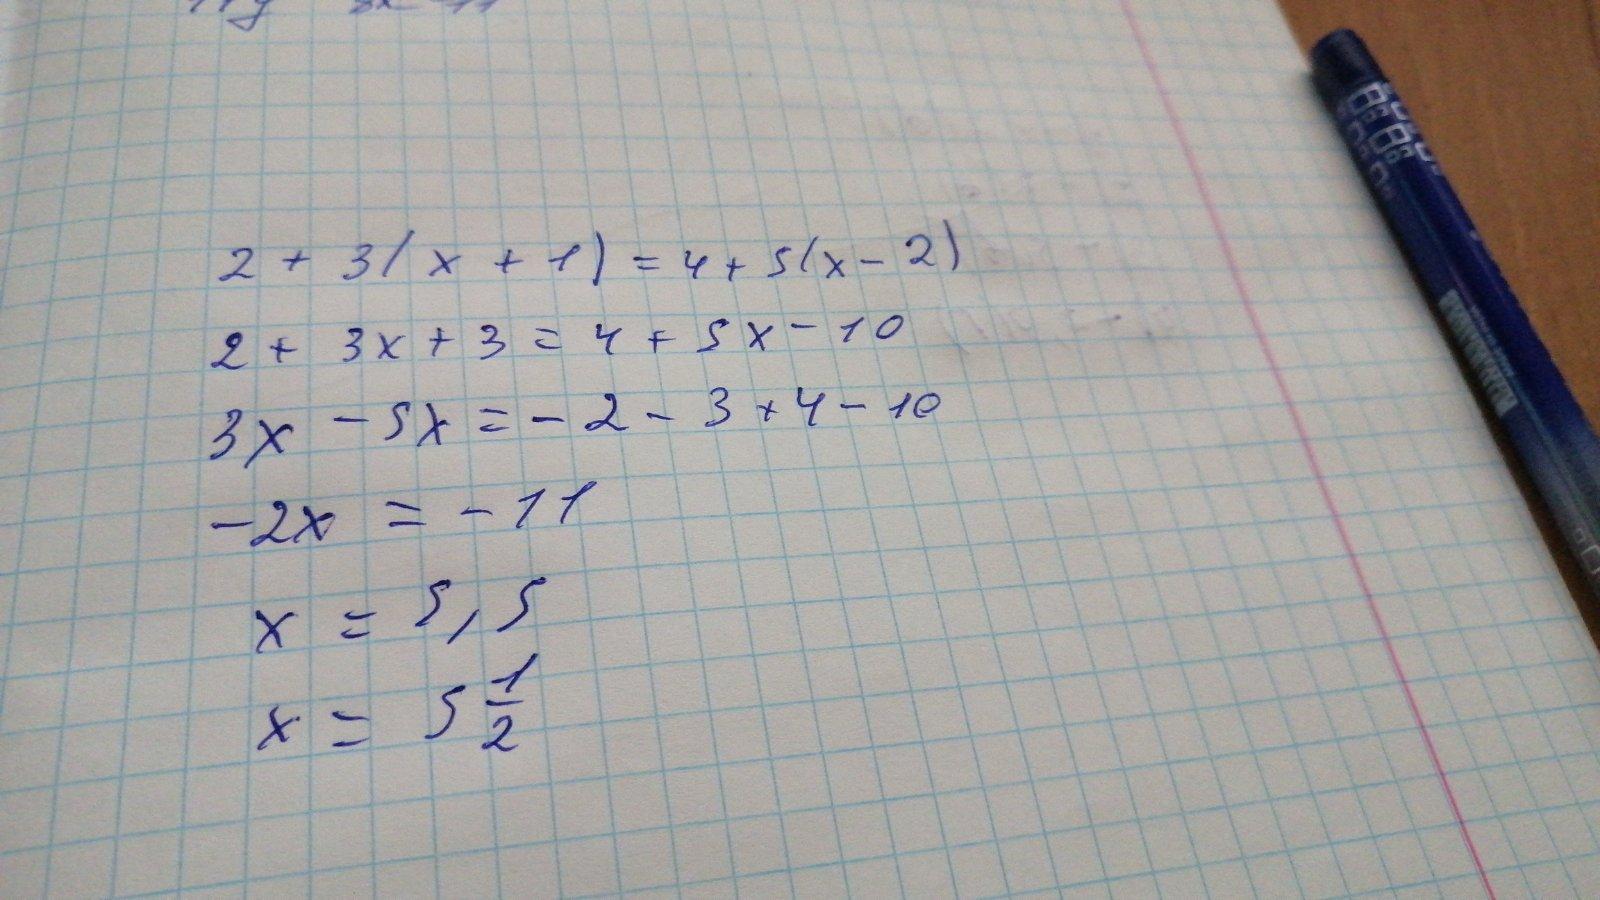 2 + 3(x + 1) = 4 + 5(x - 2)
2 + 3x + 3 = 4 + 5x - 10
3x - 5x = - 2 - 3 + 4 - 10
-2x = - 11
x = 5,5
x = 5 1/2